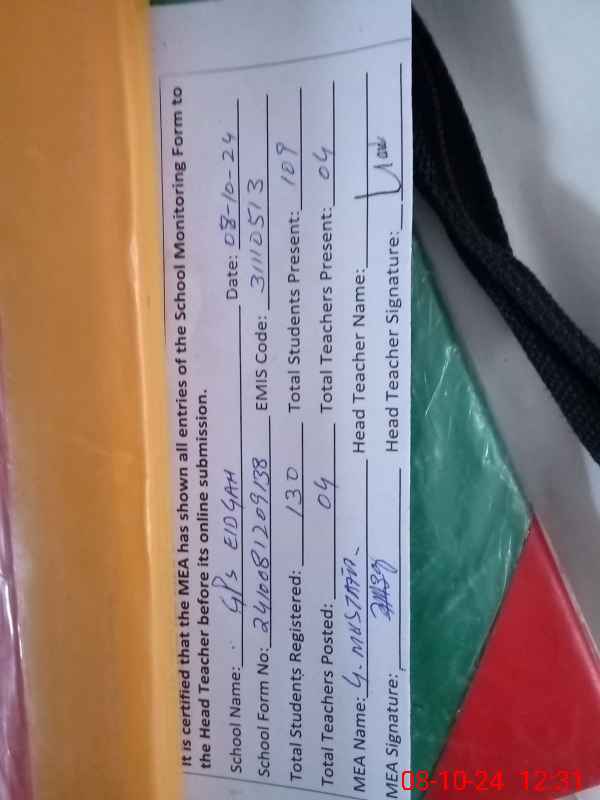 It is certified that the MEA has shown all entries of the School Monitoring Form to
the Head Teacher before its online submission.
School Name: GPS EIDGAH Date: 08-10-24
School Form No: 2410081209138 EMIS Code: 31110513
Total Students Registered: 130 Total Students Present: 109
Total Teachers Posted: 04 Total Teachers Present: 04
MEA Name: G. MUSTAFA Head Teacher Name:
MEA Signature: Head Teacher Signature:
08-10-24 12:31